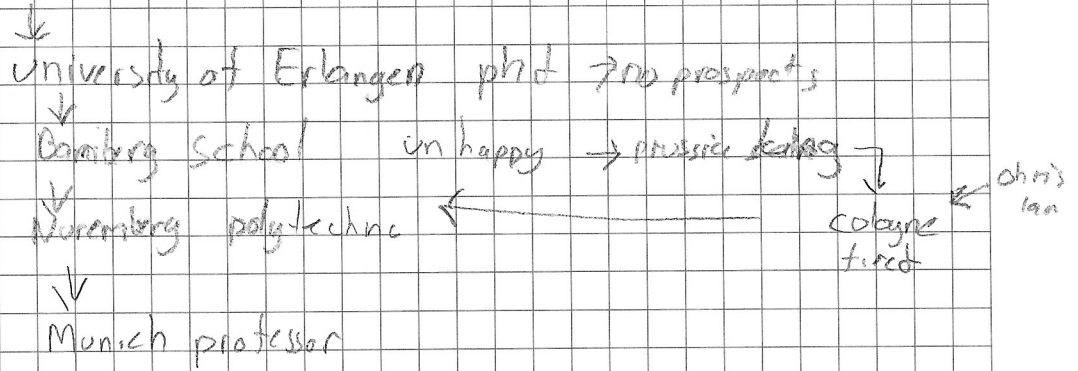 University of Erlangen phd → no prospects
Bamberg School unhappy → prussia
Ohm's law
Nuremberg polytechnc
cologne
fired
Munich professor